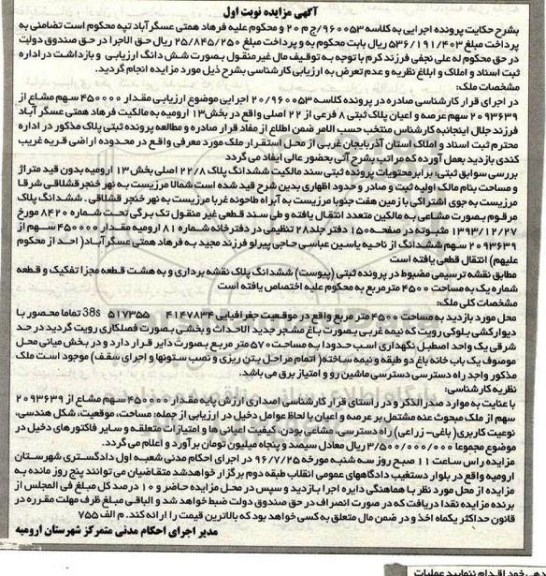 آگهی مزایده نوبت اول
بشرح حکایت پرونده اجرایی به کلاسه ۹۶۰۰۵۳/ج م ۲۰ و محکوم علیه فرهاد همتی عسگرآباد تپه محکوم است تضامنی به
پرداخت مبلغ ۵۳۶/۱۹۱/۴۰۳ ریال بابت محکوم به و پرداخت مبلغ ۲۵/۸۴۵/۲۵۰ ریال حق الاجرا در حق صندوق دولت
در حق محکوم له علی نجفی فرزند کرم با توجه به توقیف مال غیر منقول بصورت شش دانگ ارزیابی و بازداشت در اداره
ثبت اسناد و املاک و ابلاغ نظریه و عدم تعرض به ارزیابی کارشناسی بشرح ذیل مورد مزایده انجام گردید.
مشخصات ملک:
در اجرای قرار کارشناسی صادره در پرونده کلاسه ۲۰/۹۶۰۰۵۳ اجرایی موضوع ارزیابی مقدار ۴۵۰۰۰۰ سهم مشاع از
۲۰۹۳۶۳۹ سهم عرصه و اعیان پلاک ثبتی ۸ فرعی از ۲۲ اصلی واقع در بخش ۱۳ ارومیه به مالکیت فرهاد همتی عسگر آباد
فرزند جلال اینجانبه کارشناس منتخب حسب الامر ضمن اطلاع از مفاد قرار صادره و مطالعه پرونده ثبتی پلاک مذکور در اداره
محترم ثبت اسناد و املاک استان آذربایجان غربی از محل استقرار ملک مورد معرفی واقع در محدوده اراضی قریه غریب
کندی بازدید بعمل آورده که مراتب بشرح آتی بحضور عالی ایفاد می گردد
بررسی سوابق ثبتی: برابر محتویات پرونده ثبتی سند مالکیت ششدانگ پلاک ۲۲/۸ اصلی بخش ۱۳ ارومیه بدون قید متراژ
و مساحت بنام مالک اولیه ثبت و صادر و حدود اظهاری بدین شرح قید شده است شمالا مرزیست به نهر خنجر قشلاقی شرقا
مرزیست به جوی اشتراکی با زمین هفت جنوبا مرزیست به آبراه طاحونه غربا مرزیست به نهر خنجر قشلاقی. ششدانگ پلاک
مرقوم بصورت مشاعی به مالکین متعدد انتقال یافته و طی سند قطعی غیر منقول تک برگی تحت شماره ۸۴۲۰ مورخ
۱۳۹۳/۱۲/۲۷ مثبوته در صفحه ۱۵۰ دفتر جلد ۲۸ تنظیمی در دفترخانه شماره ۸۱ ارومیه مقدار ۴۵۰۰۰۰ سهم از
۲۰۹۳۶۳۹ سهم ششدانگ از ناحیه یاسین عباسی حاجی پیرلو فرزند مجید به فرهاد همتی عسگرآباد( احد از محکوم
علیهم) انتقال قطعی یافته است
مطابق نقشه ترسیمی مضبوط در پرونده ثبتی (پیوست) ششدانگ پلاک نقشه برداری و به هشت قطعه مجزا تفکیک و قطعه
شماره یک به مساحت ۴۵۰۰ مترمربع به محکوم علیه اختصاص یافته است
مشخصات کلی ملک:
محل مورد بازدید به مساحت ۴۵۰۰ متر مربع واقع در موقعیت جغرافیایی ۴۱۴۷۸۳۴ ۵۱۷۳۵۵ 38s تماما محصور با
دیوار کشی بلوکی رویت که نیمه غربی بصورت باغ مشجر جدید الاحداث و بخشی بصورت فصلکاری رویت گردید در حد
شرقی یک واحد اصطبل نگهداری اسب حدودا به مساحت ۵۷۰ متر مربع بصورت دایر قرار دارد و در بخش میانی محل
موصوف یک باب خانه باغ دو طبقه و نیمه ساخته( اتمام مراحل بتن ریزی و نصب ستونها و اجرای سقف) موجود است ملک
مذکور واجد راه دسترسی دسترسی ماشین رو و امتیاز برق می باشد.
نظریه کارشناسی:
با عنایت به موارد صدرالذکر و در راستای قرار کارشناسی اصداری ارزش پایه مقدار ۴۵۰۰۰۰ سهم مشاع از ۲۰۹۳۶۳۹
سهم از ملک مبحوث عنه مشتمل بر عرصه و اعیان با لحاظ عوامل دخیل در ارزیابی از جمله: مساحت، موقعیت، شکل هندسی،
نوعیت کاربری( باغی- زراعی) راه دسترسی، مشاعی بودن، کیفیت اعیانی ها و امتیازات متعلقه و سایر فاکتورهای دخیل در
موضوع مجموعا ۳/۵۰۰/۰۰۰/۰۰۰ ریال معادل سیصد و پنجاه میلیون تومان برآورد و اعلام می گردد.
مزایده راس ساعت ۱۱ صبح روز سه شنبه مورخه ۹۶/۷/۲۵ در اجرای احکام مدنی شعبه اول دادگستری شهرستان
ارومیه واقع در بلوار دستغیب دادگاههای عمومی انقلاب طبقه دوم برگزار خواهد شد متقاضیان می توانند پنج روز مانده به
مزایده از محل مورد نظر با هماهنگی دایره اجرا بازدید و سپس در محل مزایده حاضر و ۱۰ درصد کل مبلغ فی المجلس از
برنده مزایده نقدا دریافت که در صورت انصراف در حق صندوق دولت ضبط خواهد شد و الباقی مبلغ ظرف مهلت مقرره در
قانون حداکثر یکماه اخذ و در ضمن مال متعلق به کسی خواهد بود که بالاترین قیمت را ارائه کند. م الف ۷۵۵
مدیر اجرای احکام مدنی متمرکز شهرستان ارومیه
دهی خود اقدام ننمایند عملیات